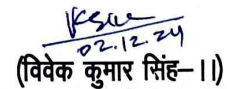 02.12.24
(विवेक कुमार सिंह-।।)